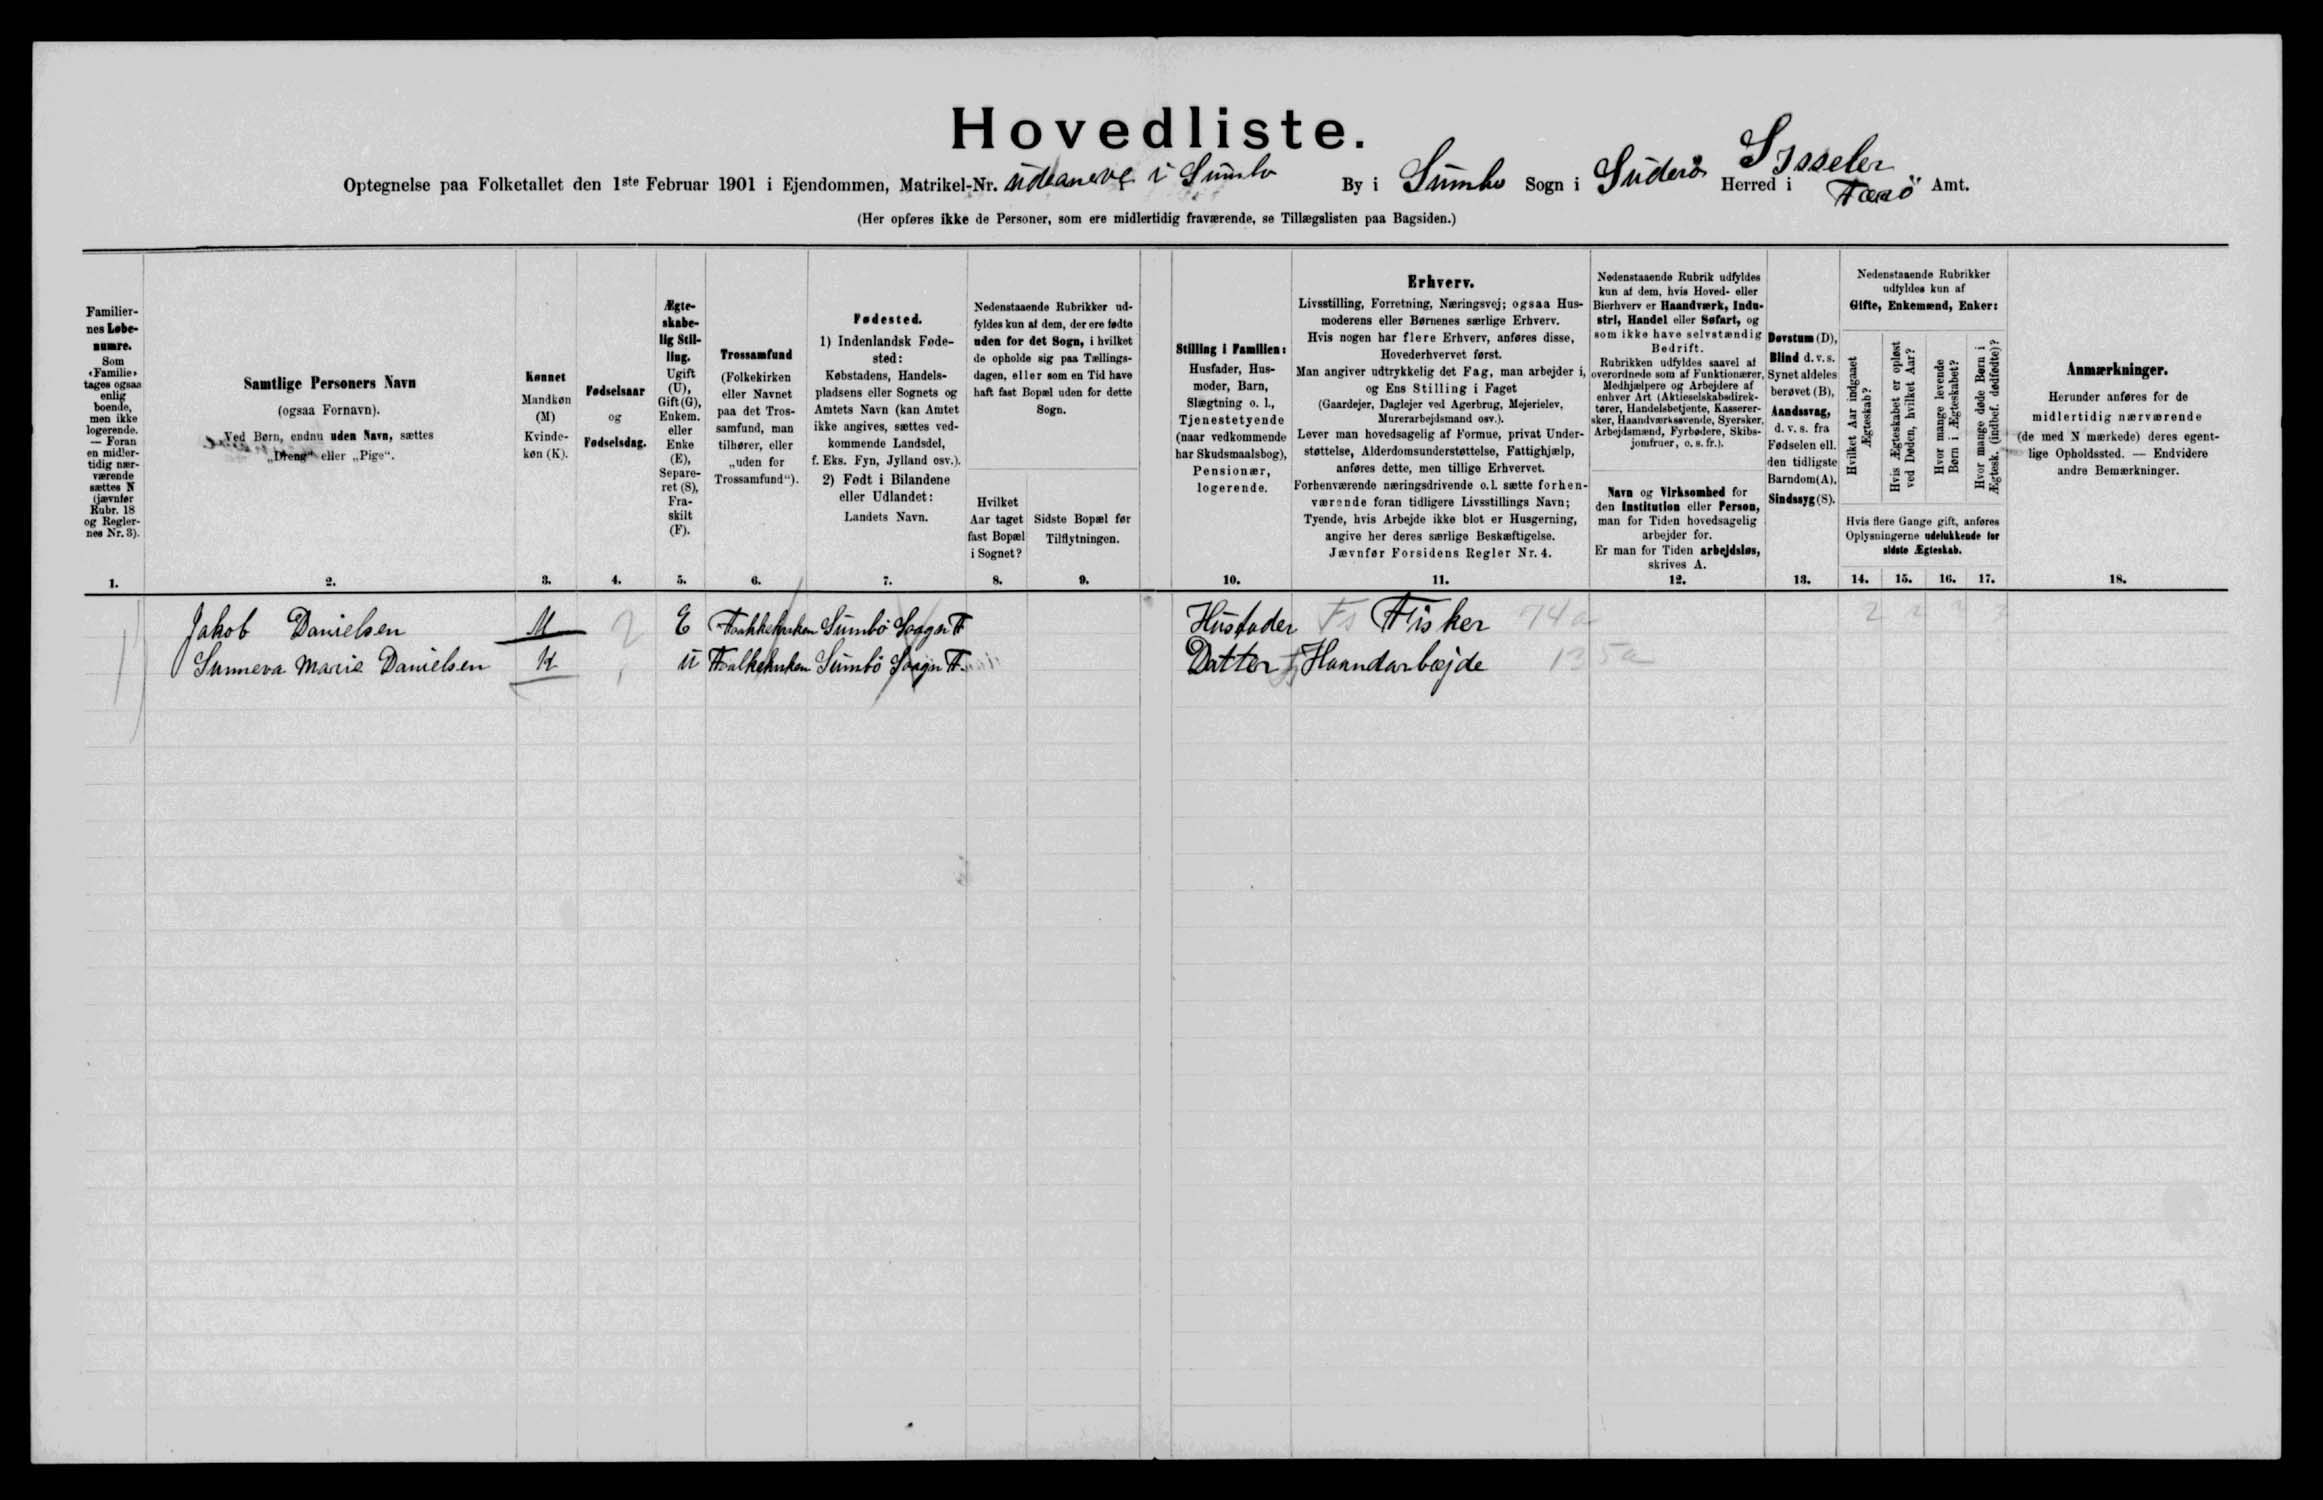 Hovedliste.
Optegnelse paa Folketallet den 1ste Februar 1901 i Ejendommen, Matrikel-Nr. i Sumbo By i Sumbo Sogn i Suderö Sysseler Herred i Færö Amt.
(Her opføres ikke de Personer, som ere midlertidig fraværende, se Tillægslisten paa Bagsiden.)
Familier-
nes Løbe-
numre.
Som
«Familie»
tages ogsaa
enlig
boende,
men ikke
logerende.
— Foran
en midler-
tidig nær-
værende
sættes N
(jævnfør
Rubr. 18
og Regler-
nes Nr. 3).
1.
Samtlige Personers Navn
(ogsaa Fornavn).
Ved Børn, endnu uden Navn, sættes
„Dreng“ eller „Pige“.
2.
Kønnet
Mandkøn
(M)
Kvinde-
køn (K).
3.
Fødselsaar
og
Fødselsdag.
4.
Ægte-
skabe-
lig Stil-
ling.
Ugift
(U),
Gift (G),
Enkem.
eller
Enke
(E),
Separe-
ret (S),
Fra-
skilt
(F).
5.
Trossamfund
(Folkekirken
eller Navnet
paa det Tros-
samfund, man
tilhører, eller
„uden for
Trossamfund“).
6.
Fødested.
1) Indenlandsk Føde-
sted:
Købstadens, Handels-
pladsens eller Sognets og
Amtets Navn (kan Amtet
ikke angives, sættes ved-
kommende Landsdel,
f. Eks. Fyn, Jylland osv.).
2) Født i Bilandene
eller Udlandet:
Landets Navn.
7.
Nedenstaaende Rubrikker ud-
fyldes kun af dem, der ere fødte
uden for det Sogn, i hvilket
de opholde sig paa Tællings-
dagen, eller som en Tid have
haft fast Bopæl uden for dette
Sogn.
Hvilket
Aar taget
fast Bopæl
i Sognet?
8.
Sidste Bopæl før
Tilflytningen.
9.
Stilling i Familien:
Husfader, Hus-
moder, Barn,
Slægtning o. l.,
Tjenestetyende
(naar vedkommende
har Skudsmaalsbog),
Pensionær,
logerende.
10.
Erhverv.
Livsstilling, Forretning, Næringsvej; ogsaa Hus-
moderens eller Børnenes særlige Erhverv.
Hvis nogen har flere Erhverv, anføres disse,
Hovederhvervet først.
Man angiver udtrykkelig det Fag, man arbejder i,
og Ens Stilling i Faget
(Gaardejer, Daglejer ved Agerbrug, Mejerielev,
Murerarbejdsmand osv.).
Lever man hovedsagelig af Formue, privat Under-
støttelse, Alderdomsunderstøttelse, Fattighjælp,
anføres dette, men tillige Erhvervet.
Forhenværende næringsdrivende o.l. sætte forhen-
værende foran tidligere Livsstillings Navn;
Tyende, hvis Arbejde ikke blot er Husgerning,
angive her deres særlige Beskæftigelse.
Jævnfør Forsidens Regler Nr. 4.
11.
Nedenstaaende Rubrik udfyldes
kun af dem, hvis Hoved- eller
Bierhverv er Haandværk, Indu-
stri, Handel eller Søfart, og
som ikke have selvstændig
Bedrift.
Rubrikken udfyldes saavel af
overordnede som af Funktionærer,
Medhjælpere og Arbejdere af
enhver Art (Aktieselskabsdirek-
tører, Handelsbetjente, Kasserer-
sker, Haandværkssvende, Syersker,
Arbejdsmænd, Fyrbødere, Skibs-
jomfruer, o. s. fr.).
Navn og Virksomhed for
den Institution eller Person,
man for Tiden hovedsagelig
arbejder for.
Er man for Tiden arbejdsløs,
skrives A.
12.
Døvstum (D),
Blind d. v. s.
Synet aldeles
berøvet (B),
Aandssvag,
d. v. s. fra
Fødselen ell.
den tidligste
Barndom (A),
Sindssyg (S).
13.
Nedenstaaende Rubrikker
udfyldes kun af
Gifte, Enkemænd, Enker:
Hvilket Aar indgaaet
Ægteskab?
Hvis Ægteskabet er opløst
ved Døden, hvilket Aar?
Hvor mange levende
Børn i Ægteskabet?
Hvor mange døde Børn i
Ægtesk. (indbef. dødfødte)?
Hvis flere Gange gift, anføres
Oplysningerne udelukkende for
sidste Ægteskab.
14. 15. 16. 17.
Anmærkninger.
Herunder anføres for de
midlertidig nærværende
(de med N mærkede) deres egent-
lige Opholdssted. — Endvidere
andre Bemærkninger.
18.
Jakob Danielsen M E Sumbö Sogn F Husfader Fs Fisker 74a
Sunneva Marie Danielsen K U Sumbö Sogn F. Datter Haandarbejde 135a